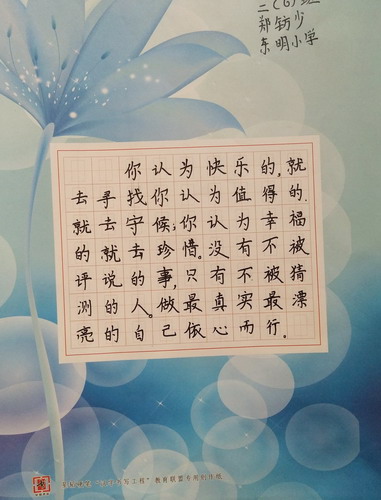 二(6)班
郑钫少
东明小学
你认为快乐的,就
去寻找你认为值得的.
就去守候;你认为幸福
的就去珍惜。没有不被
评说的事,只有不被猜
测的人。做最真实最漂
亮的自己依心而行。
教育联盟专用创作纸